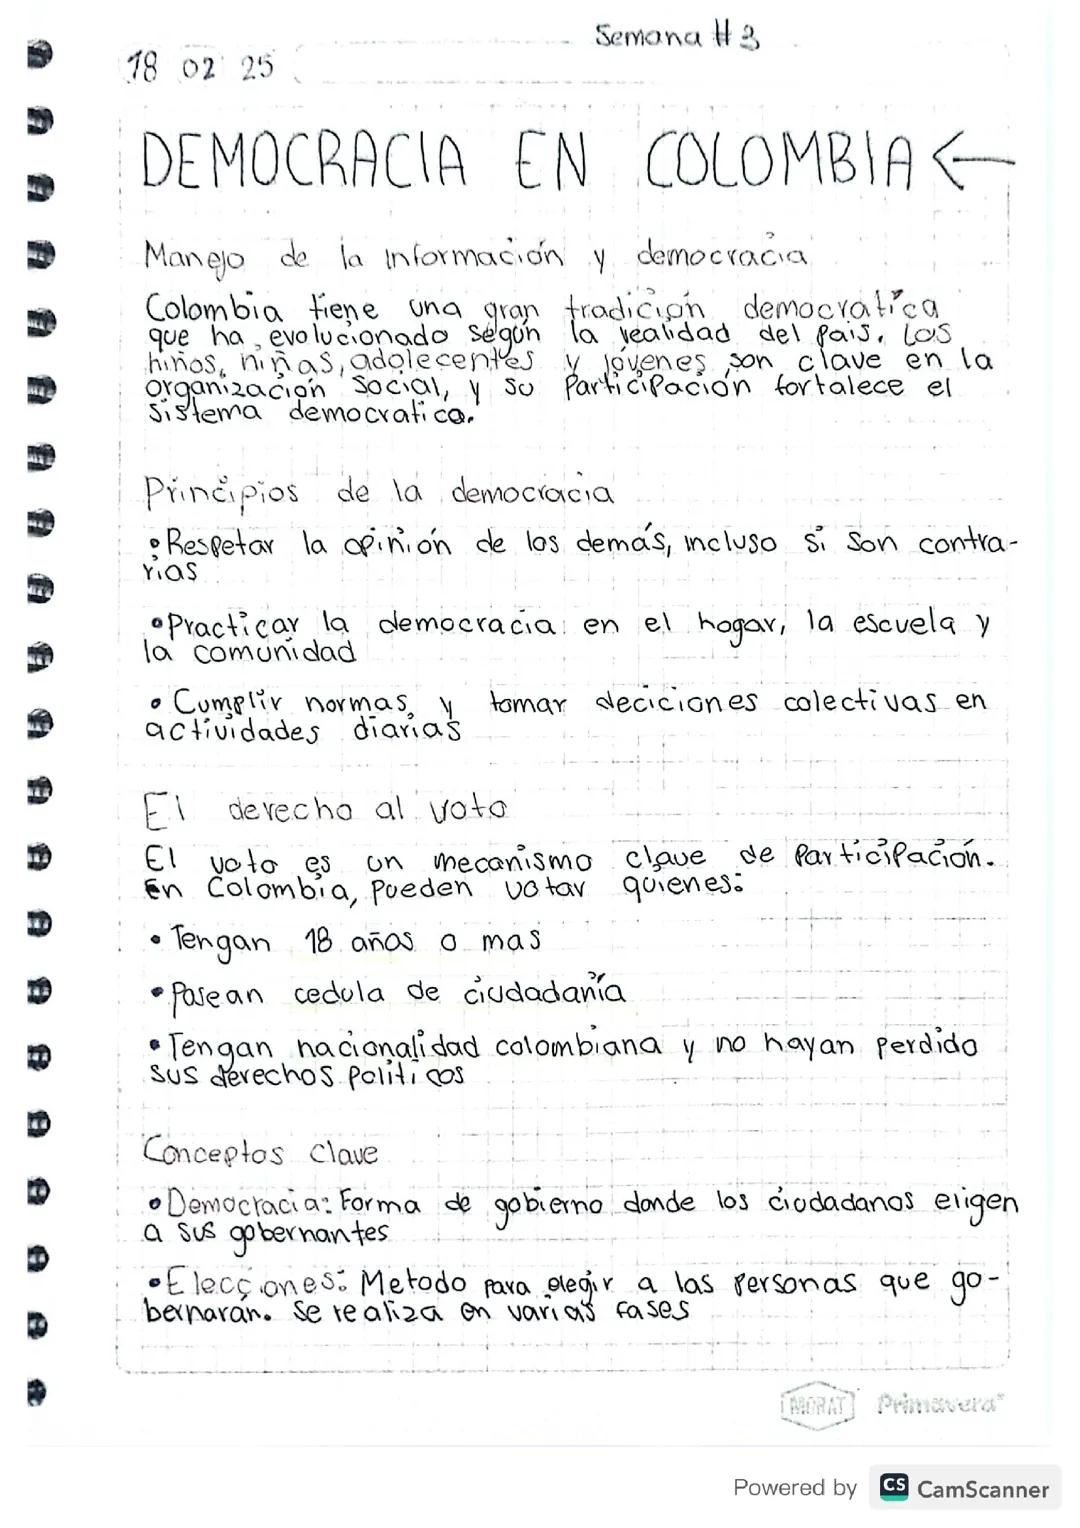 Semana #3
18 02 25
DEMOCRACIA EN COLOMBIA ←
Manejo de la información y democracia
Colombia tiene una gran tradición democratica
que ha evolucionado según la realidad del pais. Los
niños, niñas, adolecentes y jóvenes son clave en la
organización social, y su Participación fortalece el
sistema democratico.
Principios de la democracia
• Respetar la opinión de los demás, incluso si son contra-
rias
• Practicar la democracia en el hogar, la escuela y
la comunidad
• Cumplir normas y tomar deciciones colectivas en
actividades diarias
El derecho al voto
El voto es un mecanismo clave de Participación.
En Colombia, Pueden votar quienes:
• Tengan 18 años o mas
• Posean cedula de ciudadanía
• Tengan nacionalidad colombiana y no hayan perdido
sus derechos politicos
Conceptos clave
• Democracia: Forma de gobierno donde los ciudadanos eligen
a sus gobernantes
• Elecciones: Metodo para elegir a las personas que go-
bernarán. Se realiza en varias fases
MORAT Primavera®
Powered by CS CamScanner